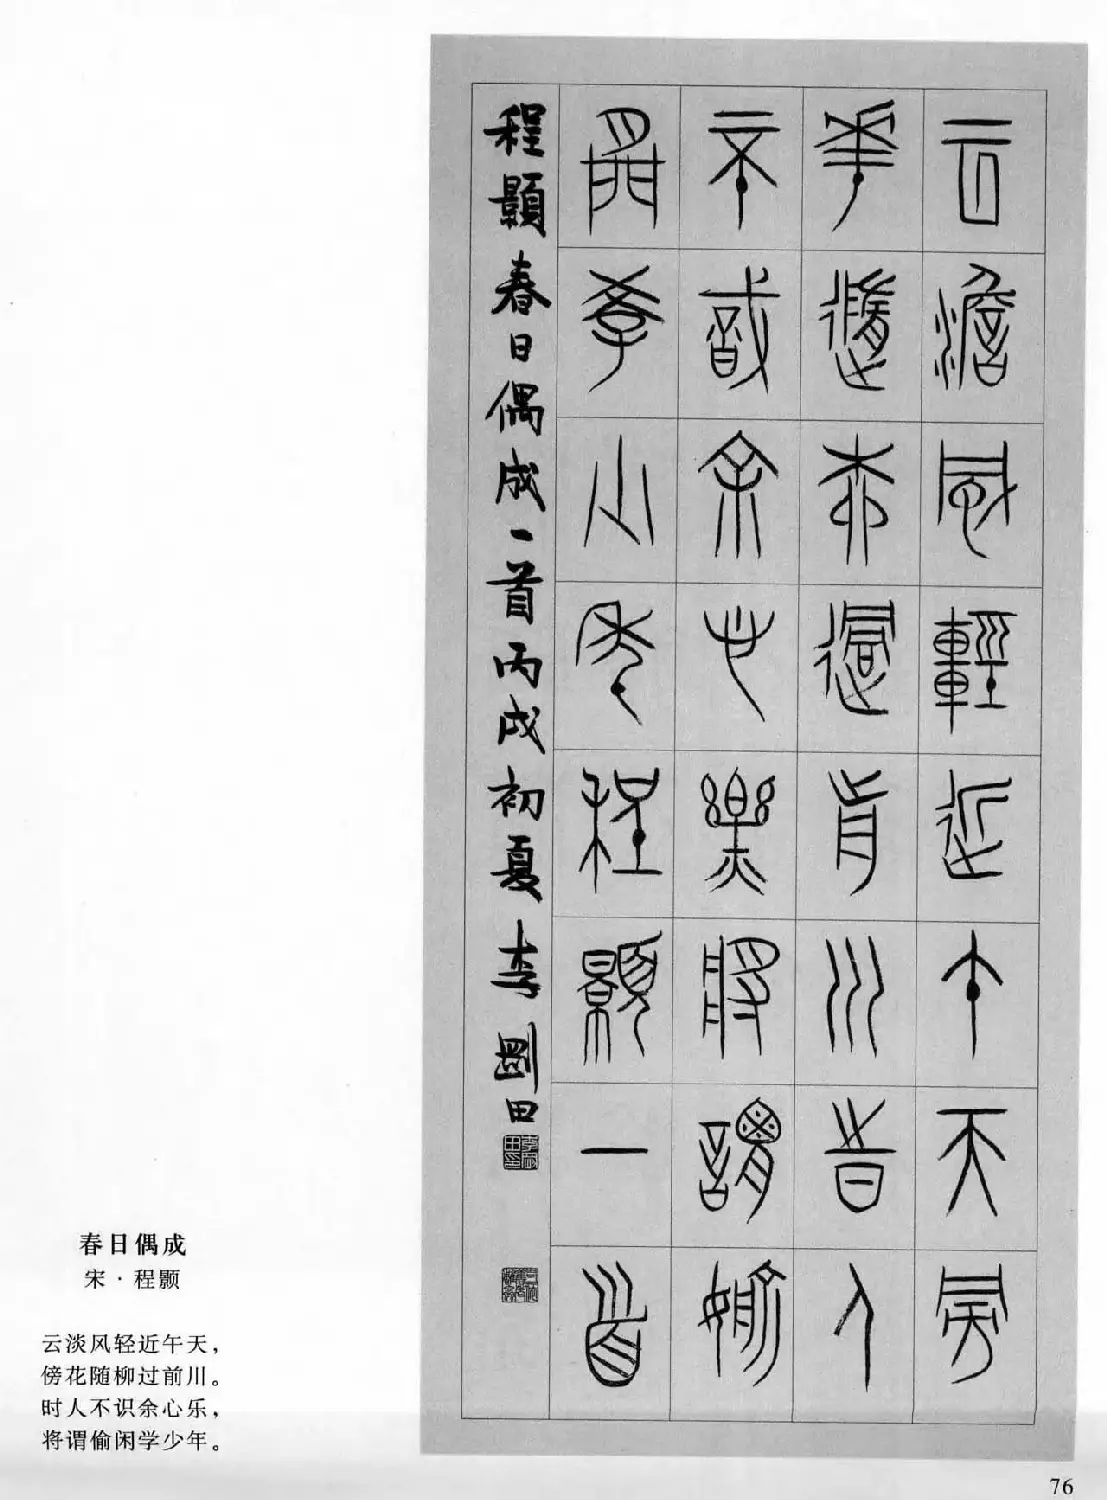 云澹風輕近午天旁
華隨柳過前川旹人
不戠余心樂將謂媮
閒學少年程顥一首
程顥春日偶成一首丙戌初夏李剛田
春日偶成
宋·程颢
云淡风轻近午天，
傍花随柳过前川。
时人不识余心乐，
将谓偷闲学少年。
76